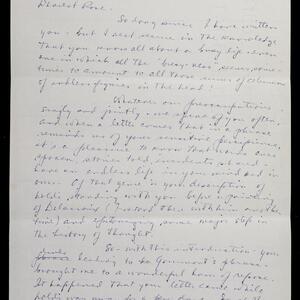 Dearest Rose.
So long since I have written
you - but I rest secure in the knowledge
that you know all about a busy life - even
one in which all the "busy-ness" seems, some-
times to amount to all those sums of columns
of endless figures in the head!
Whatever our preoccupations
singly and jointly we speak of you often,
and when a letter comes that in a phrase
reminds me of your sensitive perceptions,
it's a pleasure to know that words once
spoken, stories told, incidents shared -
have an endless life in your mind and in
ours. Of that genre is your description of
holds standing with you before a painting
of Delacroix (
time) and epitomizing some major step in
the history of thought.
So - with this introduction - you
harking to be Gourmont's phrase -
brought me to a wonderful hour of repose.
It happened that your letter came while